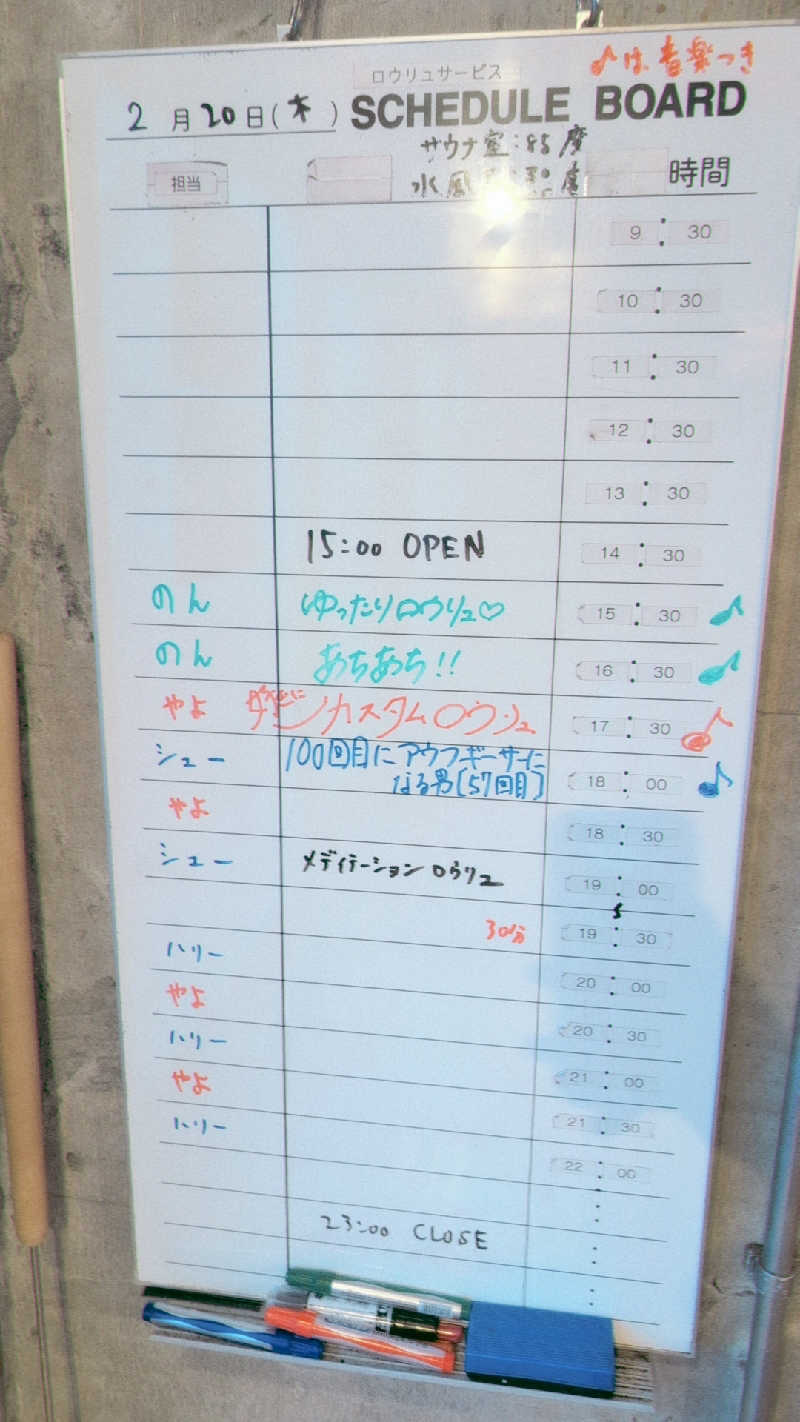 ♪は音楽つき
ロウリュサービス
2月20日(木) SCHEDULE BOARD
サウナ室:85度
水風
担当 時間
9:30
10:30
11:30
12:30
13:30
15:00 OPEN 14:30
のん ゆったりロウリュ♡ 15:30 ♪
のん あちあち!! 16:30 ♪
やよ カスタムロウリュ 17:30 ♪
シュー 100回目にアウフギーサーに 18:00 ♪
なる男(57回目)
やよ 18:30
シュー メディテーションロウリュ 19:00
30分 19:30
ハリー 20:00
やよ 20:30
ハリー 21:00
やよ 21:30
ハリー 22:00
23:00 CLOSE